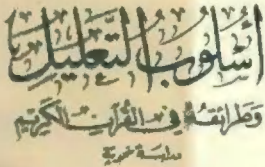 أُسْلُوبُ التَّعْلِيلِ
وَطَرَائِقُهُ فِي الْقُرْآنِ الْكَرِيمِ
دراسة نحوية